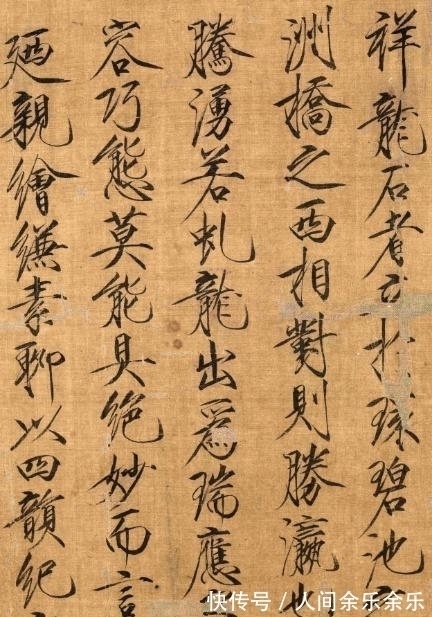 祥龍石者立於環碧池
洲橋之西相對則勝瀛也
騰湧若虬龍出爲瑞應
容巧態莫能具絕妙而言
廼親繪縑素聊以四韻紀
快传号 / 人间余乐余乐